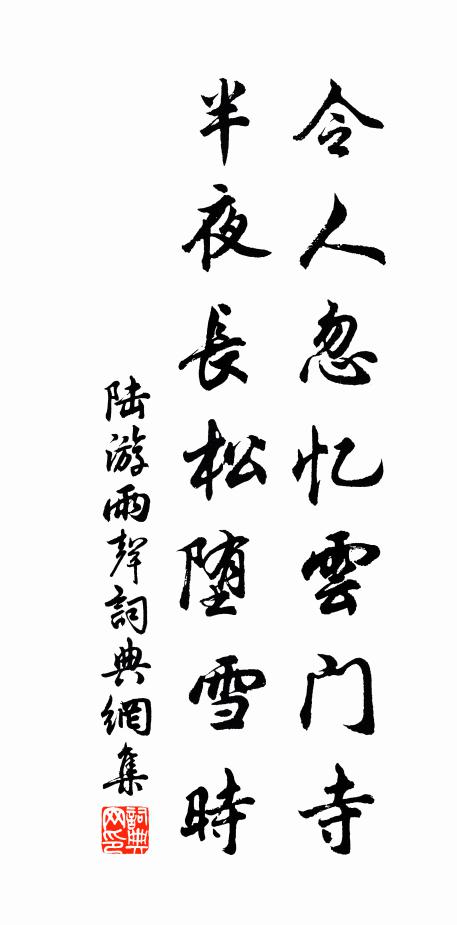 令人忽忆雲门寺
半夜長松堕雪時
陆游雨聲詞典網集
詞典网印